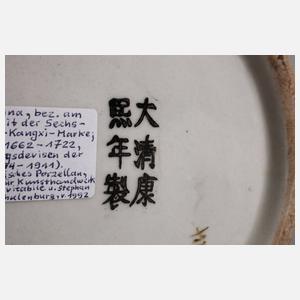 na, bez. am
it der Sechs-
-Kangxi-Marke;
1662-1722,
gsdevisen der
74-1911).
isches Porzellan,
ür Kunsthandwerk
vitabile u. Stephan
hulenburg, v. 1992
大清康
熙年製